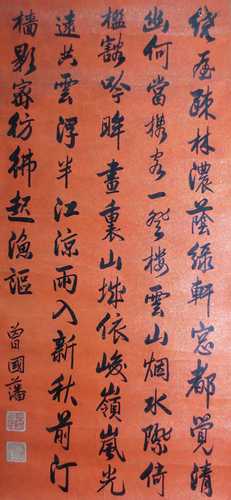 绕屋疎林濃蔭綠軒窓都覺清
幽何當攜客一登樓雲山烟水際倚
檻豁吟眸畫裏山城依峻嶺嵐光
遠共雲浮半江涼雨入新秋前汀
檣影密彷彿起漁謳
曾國藩